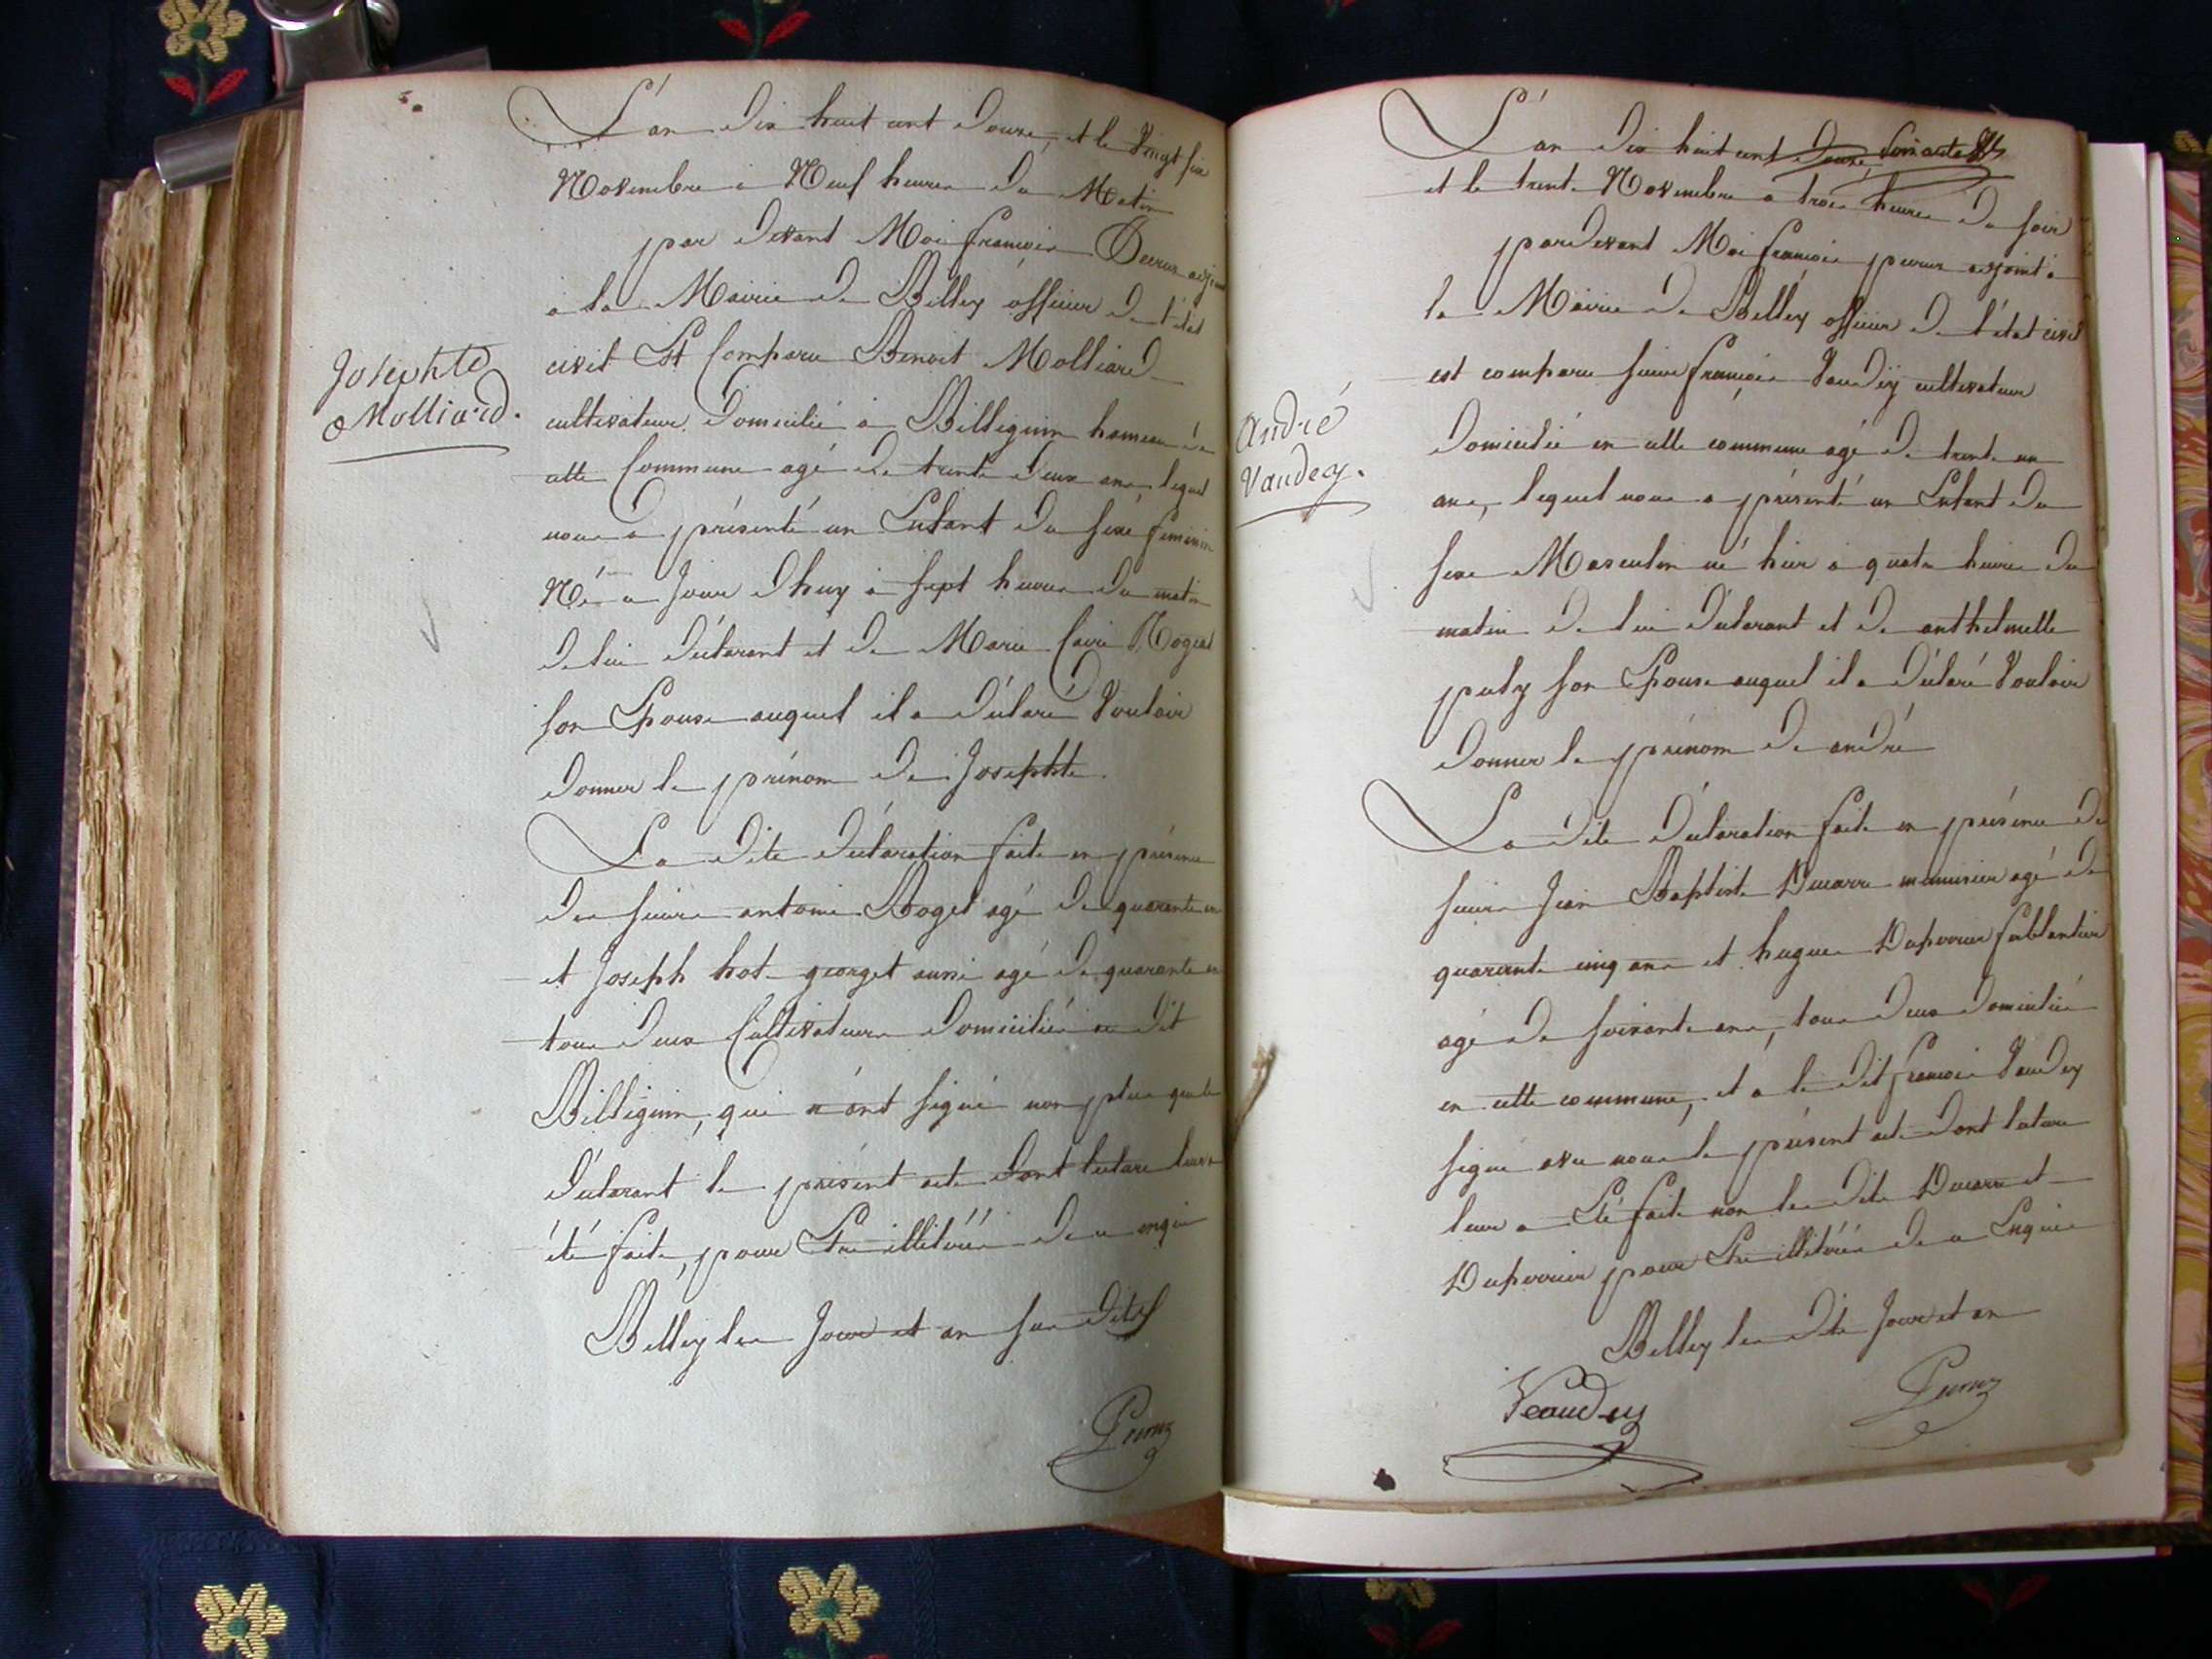 L'an dix huit cent douze, et le Vingt six
Novembre à Neuf heures du Matin
par devant Moi françois adjoint
à la Mairie de Belley officier de l'état
civil Est Comparu Benoit Molliard
Josephte
Molliard.
cultivateur Domicilié à Billignin hameau de
cette Commune agé de trente deux ans lequel
nous a présenté un Enfant du sexe feminin
Née ce Jour dhuy à sept heures du matin
de lui déclarant et de Marie Claire
son Epouse auquel il a déclaré Vouloir
donner le prénom de Josephte.
La dite déclaration faite en présence
des sieurs antoine Boget agé de quarante
et Joseph hote georget aussi agé de quarante
tous deux Cultivateurs domiciliés au dit
Billignin, qui n'ont signé non plus que le
déclarant le présent acte dont lecture leur a
été faite, pour Etre illitérés de ce enquis
Belley les Jour et an sus dits
L'an dix huit cent douze
et le trente Novembre à trois heures du soir
pardevant Moi françois adjoint à
la Mairie de Belley officier de l'état civil
est comparu sieur françois Vaudey cultivateur
André
Vaudey.
domicilié en cette commune agé de trente un
ans, lequel nous a présenté un Enfant du
sexe Masculin né hier à quatre heures du
matin de lui déclarant et de anthelmette
son Epouse auquel il a déclaré Vouloir
donner le prénom de andré
La dite déclaration faite en présence de
sieurs Jean Baptiste Ducarre menuisier agé de
quarante cinq ans et hugues Duperrier ferblantier
agé de soixante ans, tous deux domiciliés
en cette commune, et a le dit françois Vaudey
signé avec nous le présent acte dont lecture
leur a Eté faite non les dits Ducarre et
Duperrier pour Etre illitérés de ce Enquis
Belley les dits Jour et an
Veaudey